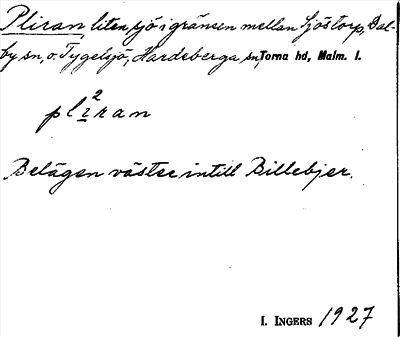 Pliran, liten sjö i gränsen mellan Sjöstorp, Dal-
by sn, o. Tygelsjö, Hardeberga sn, Torna hd, Malm. l.
pl2ıran
Belägen väster intill Billebjer.
I. INGERS 1927